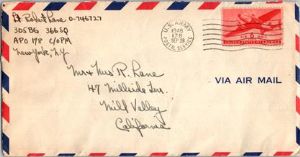 Lt. Robert Lane O-746727
305 BG 366 SQ
APO 178 c/o PM
New York, N.Y.
U.S. ARMY
POSTAL SERVICE
1946
VIA AIR MAIL
Mr & Mrs R. Lane
47 Hillside Ave
Mill Valley
California